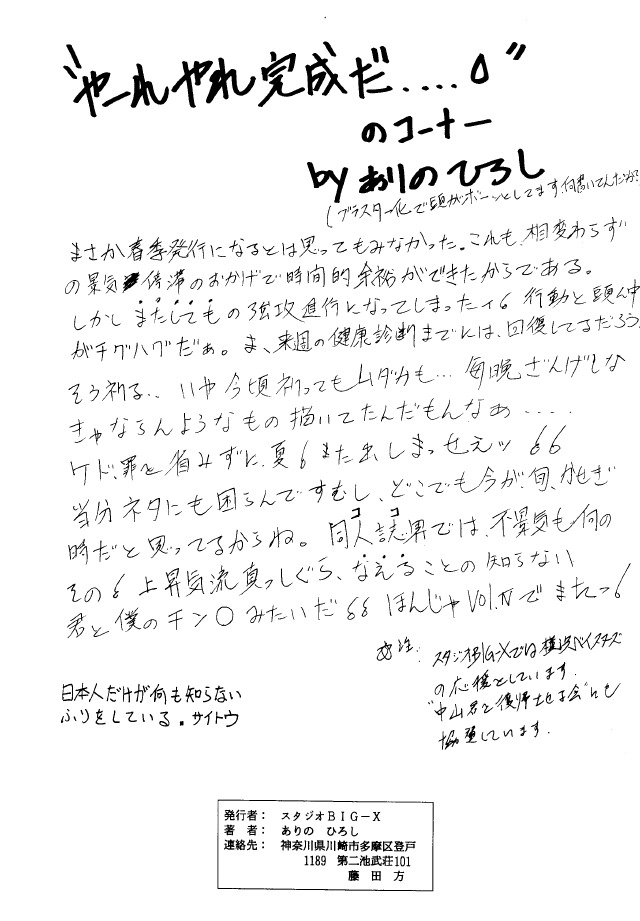 "やーれやれ完成だ....〇"
のコーナー
by ありのひろし
(ブラスター化で頭がボーッとしてます、何書いてんだか?
まさか春季発行になるとは思ってもみなかった。これも、相変わらず
の景気停滞のおかげで時間的余裕ができたからである。
しかしまたしてもの強攻進行になってしまったィ6 行動と頭ん中
がチグハグだぁ。ま、来週の健康診断までには、回復してるだろう
そう祈る.. いや今頃祈ってもムダかも… 毎晩ざんげしな
きゃならんようなもの描いてたんだもんなぁ.....
ケド、罪を省みずに、夏6また出しまっせぇッ 66
当分ネタにも困らんですむし、どこでも今が旬、かせぎ
時だと思ってるからね。同人誌界では、不景気も何の
ココ
その6 上昇気流真っしぐら、なえることの知らない
君と僕のチン〇みたいだ66 ほんじゃVol.Ⅳでまたっ6
スタジオBIG-Xでは横浜ベイスターズ
の応援をしています.
"中山君を復帰させる会"にも
協賛しています.
日本人だけが何も知らない
ふりをしている。サイトウ
発行者： スタジオＢＩＧ－Ｘ
著　者： ありの　ひろし
連絡先： 神奈川県川崎市多摩区登戸
1189　第二池武荘101
藤　田　方